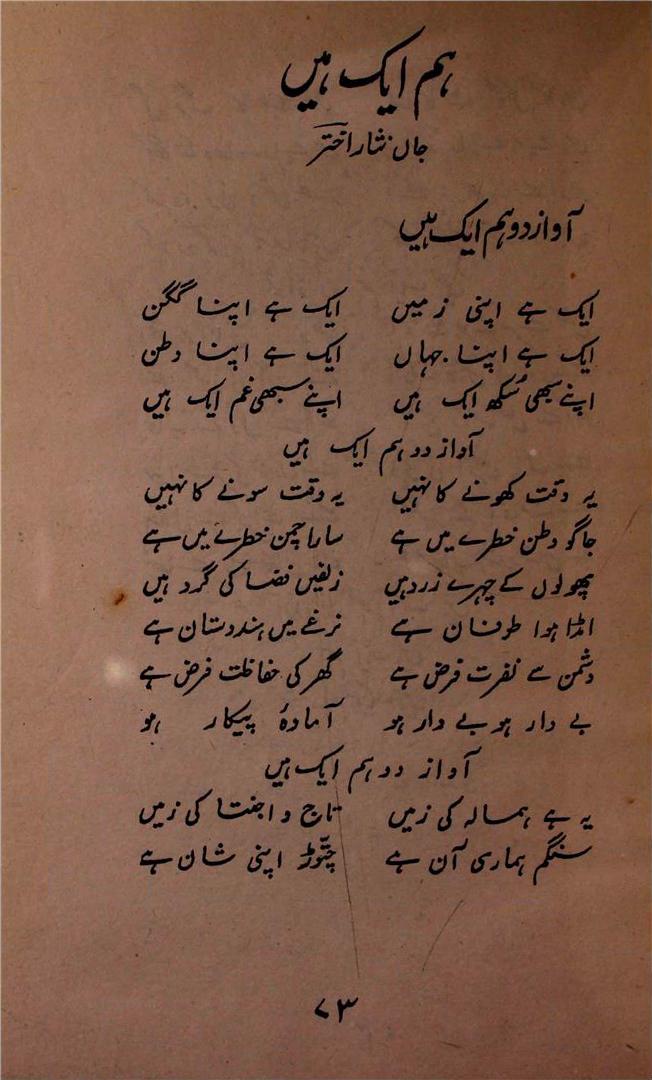 ہم ایک ہیں
جاں نثار اختر
آواز دو ہم ایک ہیں
ایک ہے اپنی زمیں ایک ہے اپنا گگن
ایک ہے اپنا جہاں ایک ہے اپنا وطن
اپنے سبھی سُکھ ایک ہیں اپنے سبھی غم ایک ہیں
آواز دو ہم ایک ہیں
یہ وقت کھونے کا نہیں یہ وقت سونے کا نہیں
جاگو وطن خطرے میں ہے سارا چمن خطرے میں ہے
پھولوں کے چہرے زرد ہیں زلفیں فضا کی گرد ہیں
امڈا ہوا طوفان ہے نرغے میں ہندوستان ہے
دشمن سے نفرت فرض ہے گھر کی حفاظت فرض ہے
بے دار ہو بے دار ہو آمادۂ پیکار ہو
آواز دو ہم ایک ہیں
یہ ہے ہمالہ کی زمیں تاج و اجنتا کی زمیں
سنگم ہماری آن ہے چتّوڑ اپنی شان ہے
۷۳